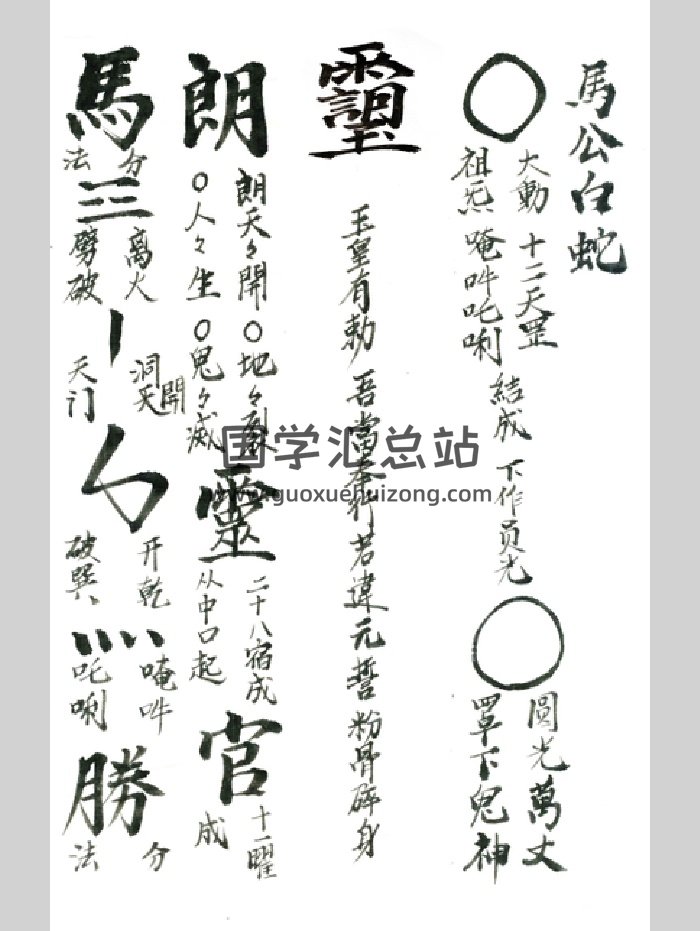 馬公白蛇
大動 十二天罡
祖炁 唵吽吒唎
結成 下作員光
圓光萬丈
罩下鬼神
玉皇有勅 吾當奉行 若違元誓 粉骨碎身
朗
朗天々開 〇地々裂
〇人々生 〇鬼々滅
靈
二十八宿成
从中口起
官
十一曜
成
馬
分
法
三
离火
劈破
洞天開
天门
开乾
破巽
唵吽
吒唎
勝
分
法
国学汇总站
www.guoxuehuizong.com